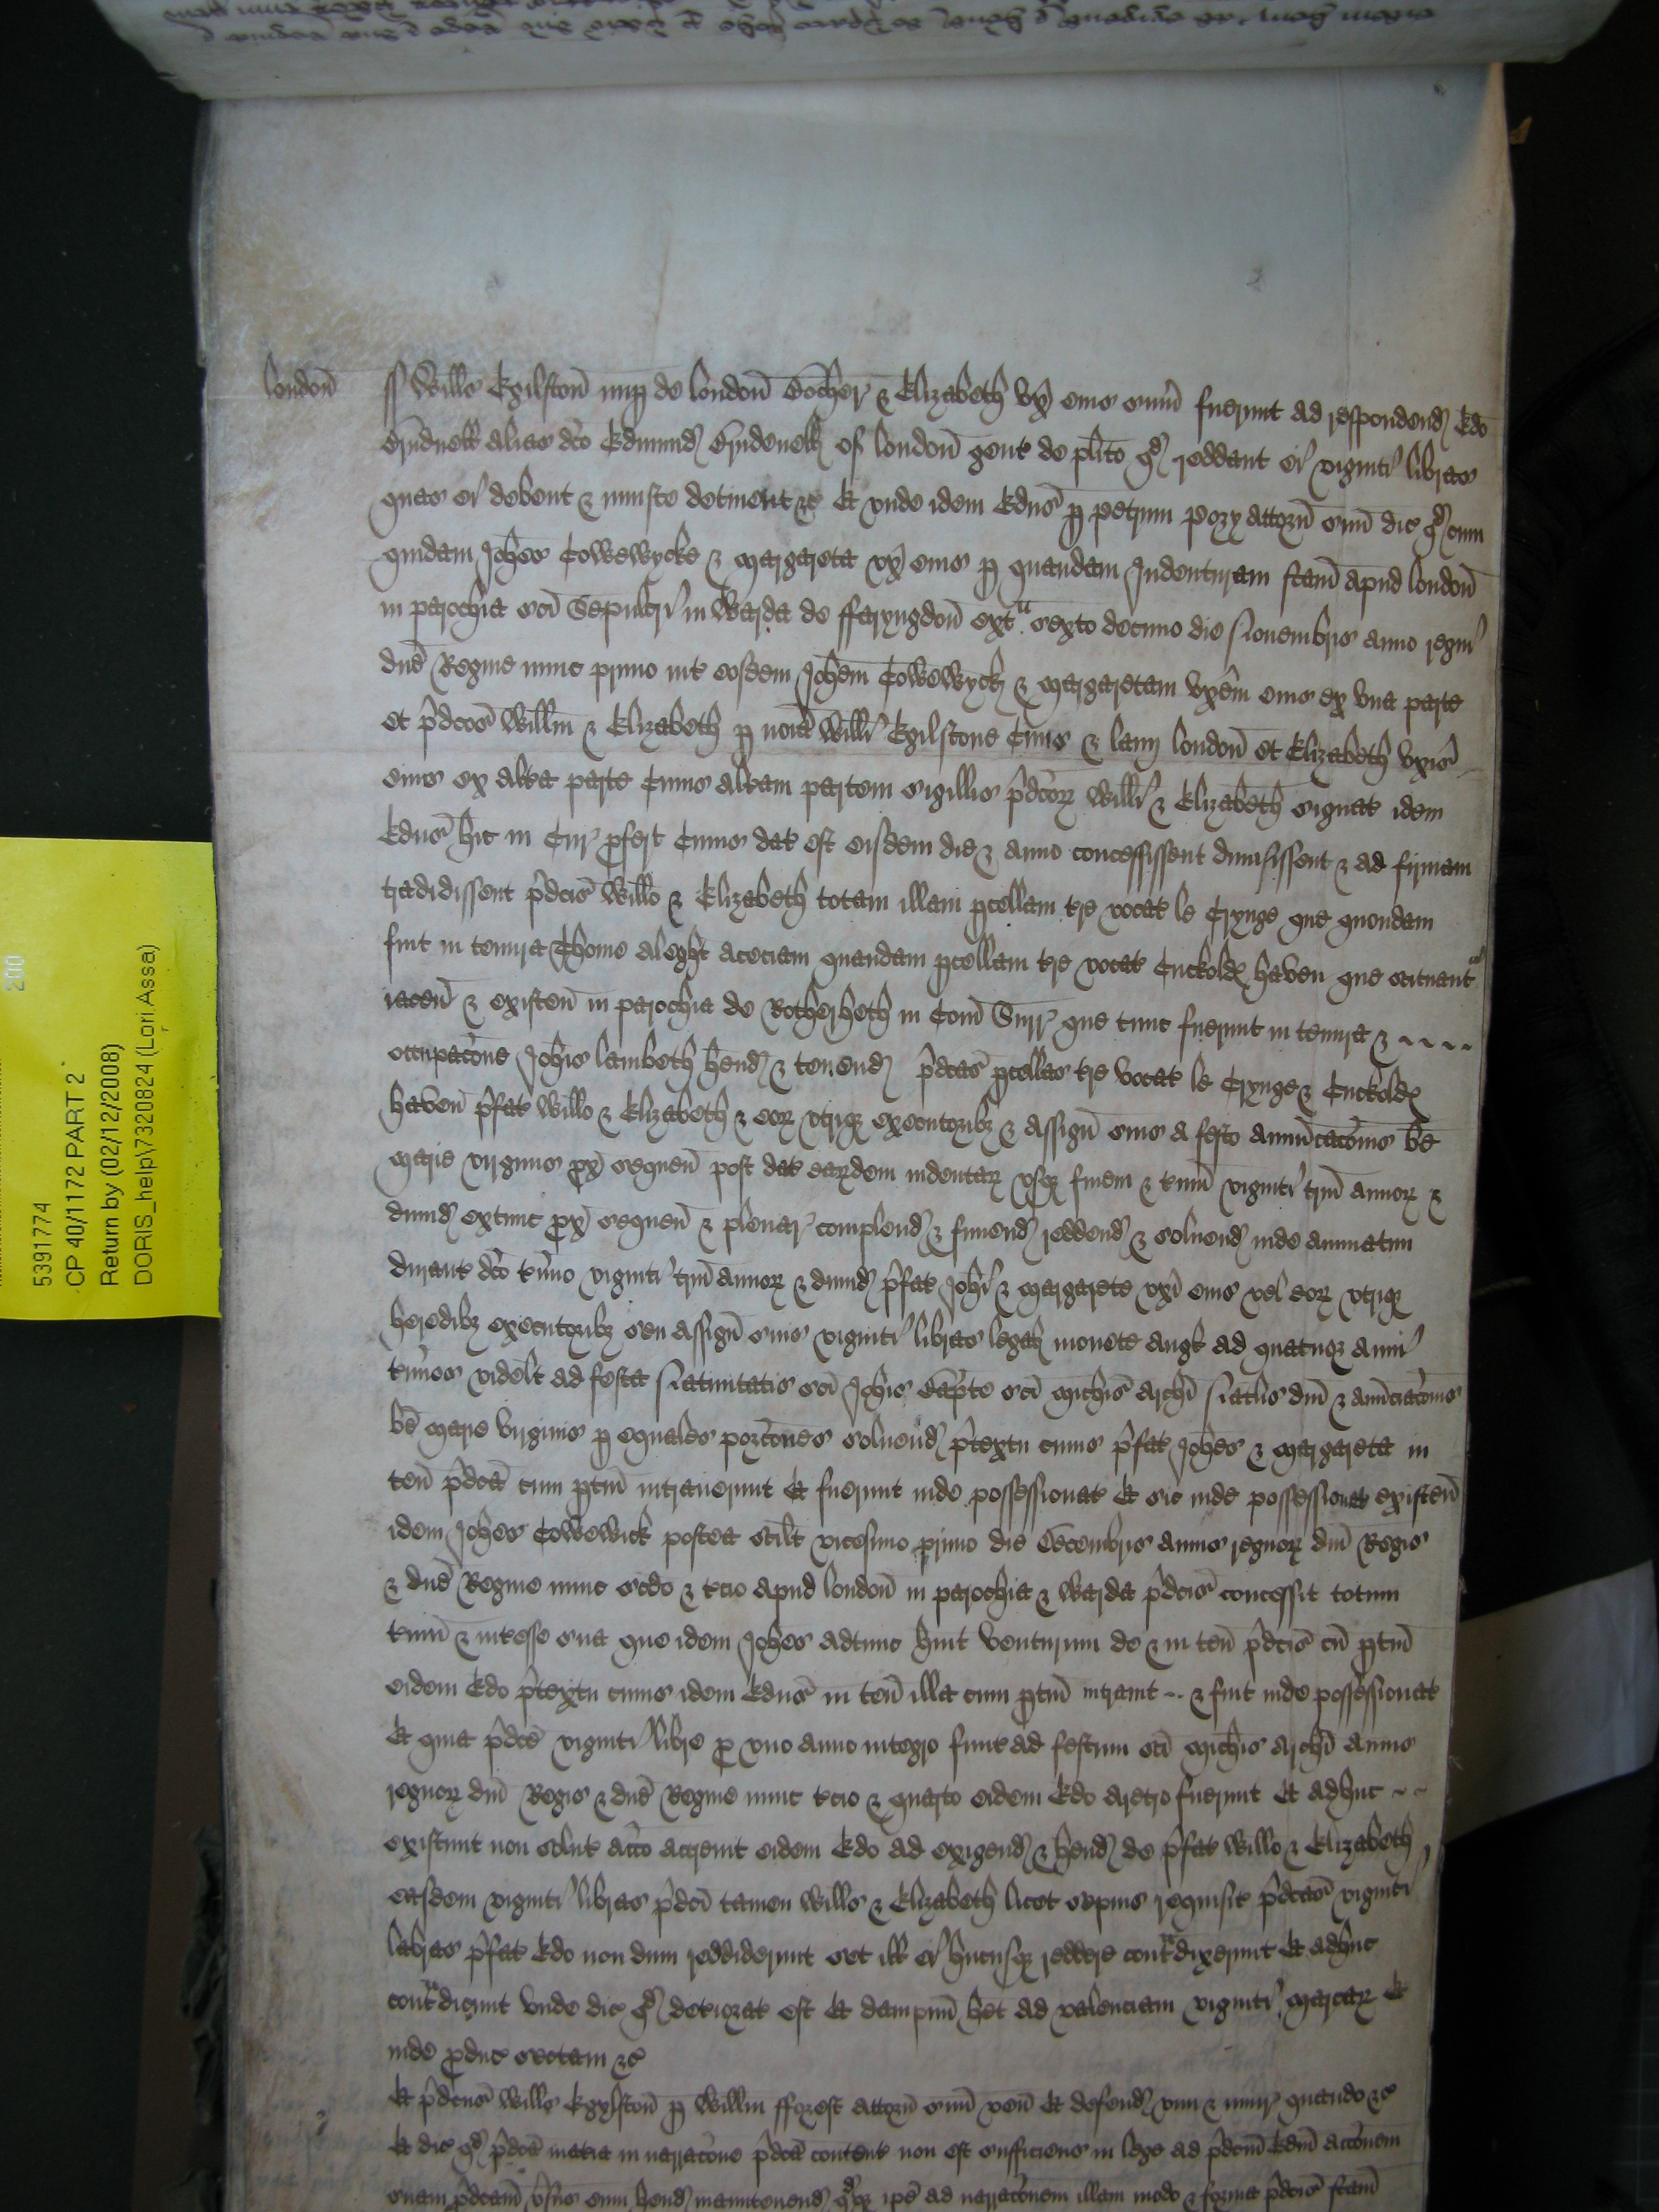 londoñ ss Willo Egilston nup de londoñ Bocher & Elizabeth vx eius sum fuerunt ad respondend Edo
Brydnell alias dco Edmund Brydenell of london gent de plito qd reddant ei viginti libras
quas ei debent & iniuste detinent &c Et vnde idem Edus p petrum pory attorn suu dic qd cum
quidam Johes Cowewycke & Margareta vx eius p quandam Indenturam fcam apud london
in parochia sci Sepulcri in Warda de ffaryngdon exta sexto decimo die Nouembris anno regni
dne Regine nunc primo int eosdem Johem Cowewyck & Margaretam vxem eius ex vna parte
et pdcos Willm & Elizabeth p noia Willi Egilstone Ciuis & lanij london et Elizabeth vxis
eius ex altia parte Cuius altam partem sigillis pdcor Willi & Elizabeth signat idem
Edus hic in Cur pfert Cuius dat est eisdem die & anno concessissent dimisissent & ad firmam
tradidissent pdcis Willo & Elizabeth totam illam pcellam tre vocat le Crynge que quondam
fuit in tenura Thome aleght aceciam quandam pcellam tre vocat Cuckold haven que scituant
iacen & existen in parochia de Rotherheth in Com Surr que tunc fuerunt in tenura &
occupacone Johis lambeth hend & tenend pdcas pcellas tre vocat le Crynge & Cuckold
haven pfat Willo & Elizabeth & eor vtriq executoribz & assign suis a festo annunciaconis be
Marie virginis px sequen post dat eardem indentar vsq finem & tmin viginti trium annor &
dimid extunc px sequen & plenar complend & finiend reddend & soluend inde annuatim
durant dco tmino viginti trium annor & dimid pfat Johi & Margarete vxi eius vel eor vtriq
heredibz executoribz seu assign suis viginti libras legal monete angl ad quatuor anni
tmios videlt ad festa Natiuitatis sci Johis Bapte sci Michis archi Natlis dni & annciaconis
be Marie virginis p equales porcones soluend ptextu cuius pfat Johes & Margareta in
ten pdca cum ptin intrauerunt Et fuerunt inde possessionat Et sic inde possessionat existen
idem Johes Cowewick postea scilt vicesimo primo die Decembris annis regnor dni Regis
& dne Regine nunc scdo & tcio apud london in parochia & Warda pdcis concessit totum
tmin & intesse sua que idem Johes adtunc huit venturum de & in ten pdcis cu ptin
eidem Edo ptextu cuius idem Edus in ten illa cum ptin intrauit & fuit inde possessionat
Et quia pdce viginti libre p vno anno integro finit ad festum sci Michis archi annis
regnor dni Regis & dne Regine nunc tcio & quarto eidem Edo aretro fuerunt Et adhuc
existunt non solut acco accreuit eidem Edo ad exigend & hend de pfat Willo & Elizabeth
easdem viginti libras pdci tamen Willo & Elizabeth licet sepius requisit pdcas viginti
libras pfat Edo non dum reddiderunt set ill ei hucusq reddere contadixerunt Et adhuc
contadicunt vnde dic qd deteriorat est Et dampnu het ad valenciam viginti Marcar Et
inde pduc sectam &c
Et pdcus Willo Egylston p Willm fforest attorn suu ven Et defend vim & iniur quando &c
Et dic qd pdca matia in narracone pdca content non est sufficiens in lege ad pdcm Edm acconem
suam pdcam vsus eum hend manutenend qdq ipe ad narraconem illam modo & forma pdcis fcam
5391774
CP 40/1172 PART 2
Return by (02/12/2008)
DORIS_help\7320824 (Lori Assa)
200